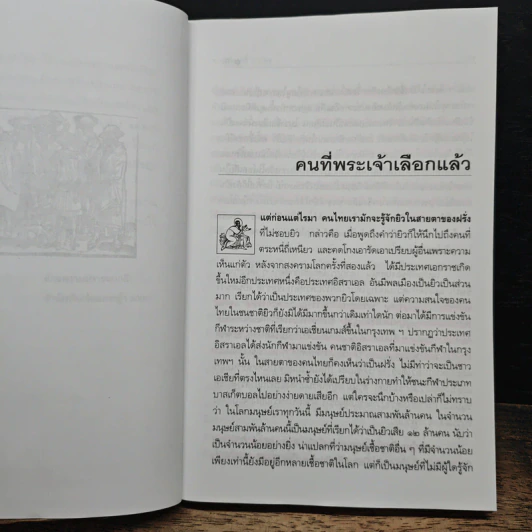 คนที่พระเจ้าเลือกแล้ว
แต่ก่อนแต่ไรมา คนไทยเรามักจะรู้จักยิวในสายตาของฝรั่ง
ที่ไม่ชอบยิว กล่าวคือ เมื่อพูดถึงคำว่ายิวก็ให้นึกไปถึงคนที่
ตระหนี่ถี่เหนียว และคดโกงเอารัดเอาเปรียบผู้อื่นเพราะความ
เห็นแก่ตัว หลังจากสงครามโลกครั้งที่สองแล้ว ได้มีประเทศเอกราชเกิด
ขึ้นใหม่อีกประเทศหนึ่งคือประเทศอิสราเอล อันมีพลเมืองเป็นยิวเป็นส่วน
มาก เรียกได้ว่าเป็นประเทศของพวกยิวโดยเฉพาะ แต่ความสนใจของคน
ไทยในชนชาติยิวก็ยังมิได้มีมากขึ้นกว่าเดิมเท่าใดนัก ต่อมาได้มีการแข่งขัน
กีฬาระหว่างชาติที่เรียกว่าเอเชียนเกมส์ขึ้นในกรุงเทพ ฯ ปรากฏว่าประเทศ
อิสราเอลได้ส่งนักกีฬามาแข่งขัน คนชาติอิสราเอลที่มาแข่งขันกีฬาในกรุง
เทพฯ นั้น ในสายตาของคนไทยก็คงเห็นว่าเป็นฝรั่ง ไม่มีท่าว่าจะเป็นชาว
เอเชียที่ตรงไหนเลย มิหนำซ้ำยังได้เปรียบในร่างกายทำให้ชนะกีฬาประเภท
บาสเก็ตบอลไปอย่างง่ายดายเสียอีก แต่ใครจะนึกบ้างหรือเปล่าก็ไม่ทราบ
ว่า ในโลกมนุษย์เราทุกวันนี้ มีมนุษย์ประมาณสามพันล้านคน ในจำนวน
มนุษย์สามพันล้านคนนี้เป็นมนุษย์ที่เรียกได้ว่าเป็นยิวเสีย ๑๒ ล้านคน นับว่า
เป็นจำนวนน้อยอย่างยิ่ง น่าแปลกที่ว่ามนุษย์เชื้อชาติอื่น ๆ ที่มีจำนวนน้อย
เพียงเท่านี้ยังมีอยู่อีกหลายเชื้อชาติในโลก แต่ก็เป็นมนุษย์ที่ไม่มีผู้ใดรู้จัก